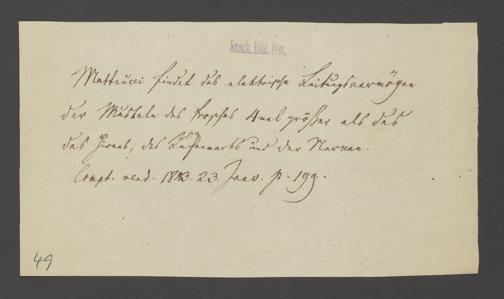 Senck. Bibl. Ffm.
Matteucci findet das elektrische Leitungsvermögen
der Muskeln des Frosches 4mal größer als das
des Hirnes, des Rückenmarks und der Nerven.
Compt. rend. 1843. 23 Janv. p. 199.
49